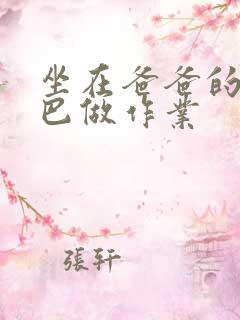 坐在爸爸的
巴做作業
張轩